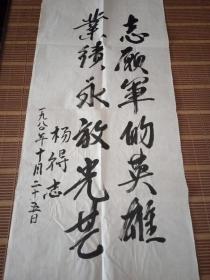 志願軍的英雄
業績永放光芒
楊得志
一九八〇年十月二十五日